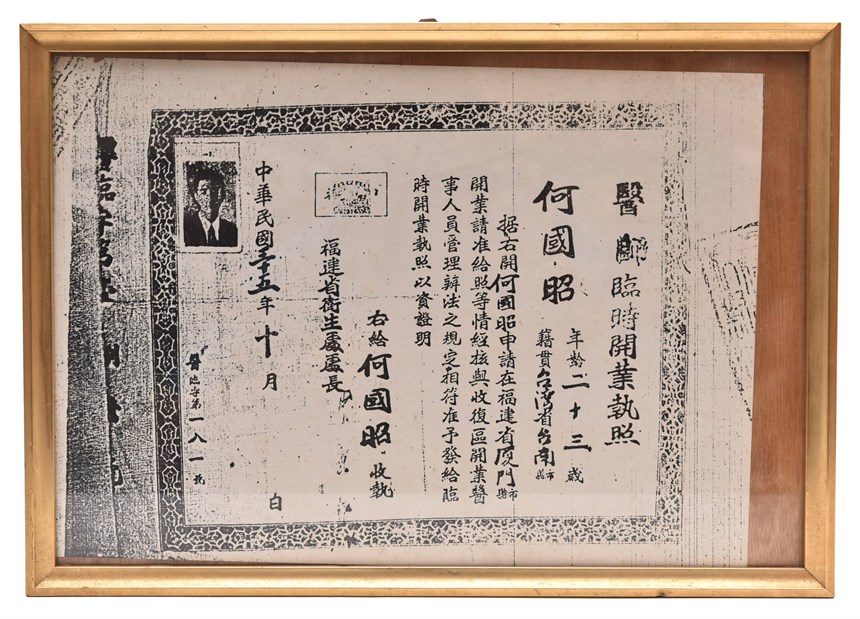 醫師臨時開業執照
何國昭
年齡二十三歲
籍貫台灣省台南市縣
据右開何國昭申請在福建省厦門市縣
開業請准給照等情經核與收復區開業醫
事人員管理辦法之規定相符准予發給臨
時開業執照以資證明
右給何國昭收執
福建省衛生處處長
中華民國三十五年十月 日
醫臨字第一八一號